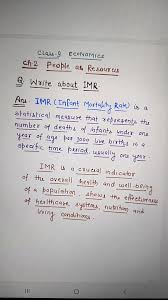 Class-9 Economics
Ch:2 People as Resources
Q. Write about IMR
Ans: IMR (Infant Mortality Rate) is a
statistical measure that represents the
number of deaths of infants under one
year of age per 1000 live births in a
specific time period usually one year
IMR is a crucial indicator
of the overall health and well-being
of a population. shows the effectiveness
of healthcare systems, nutrition and
living conditions.